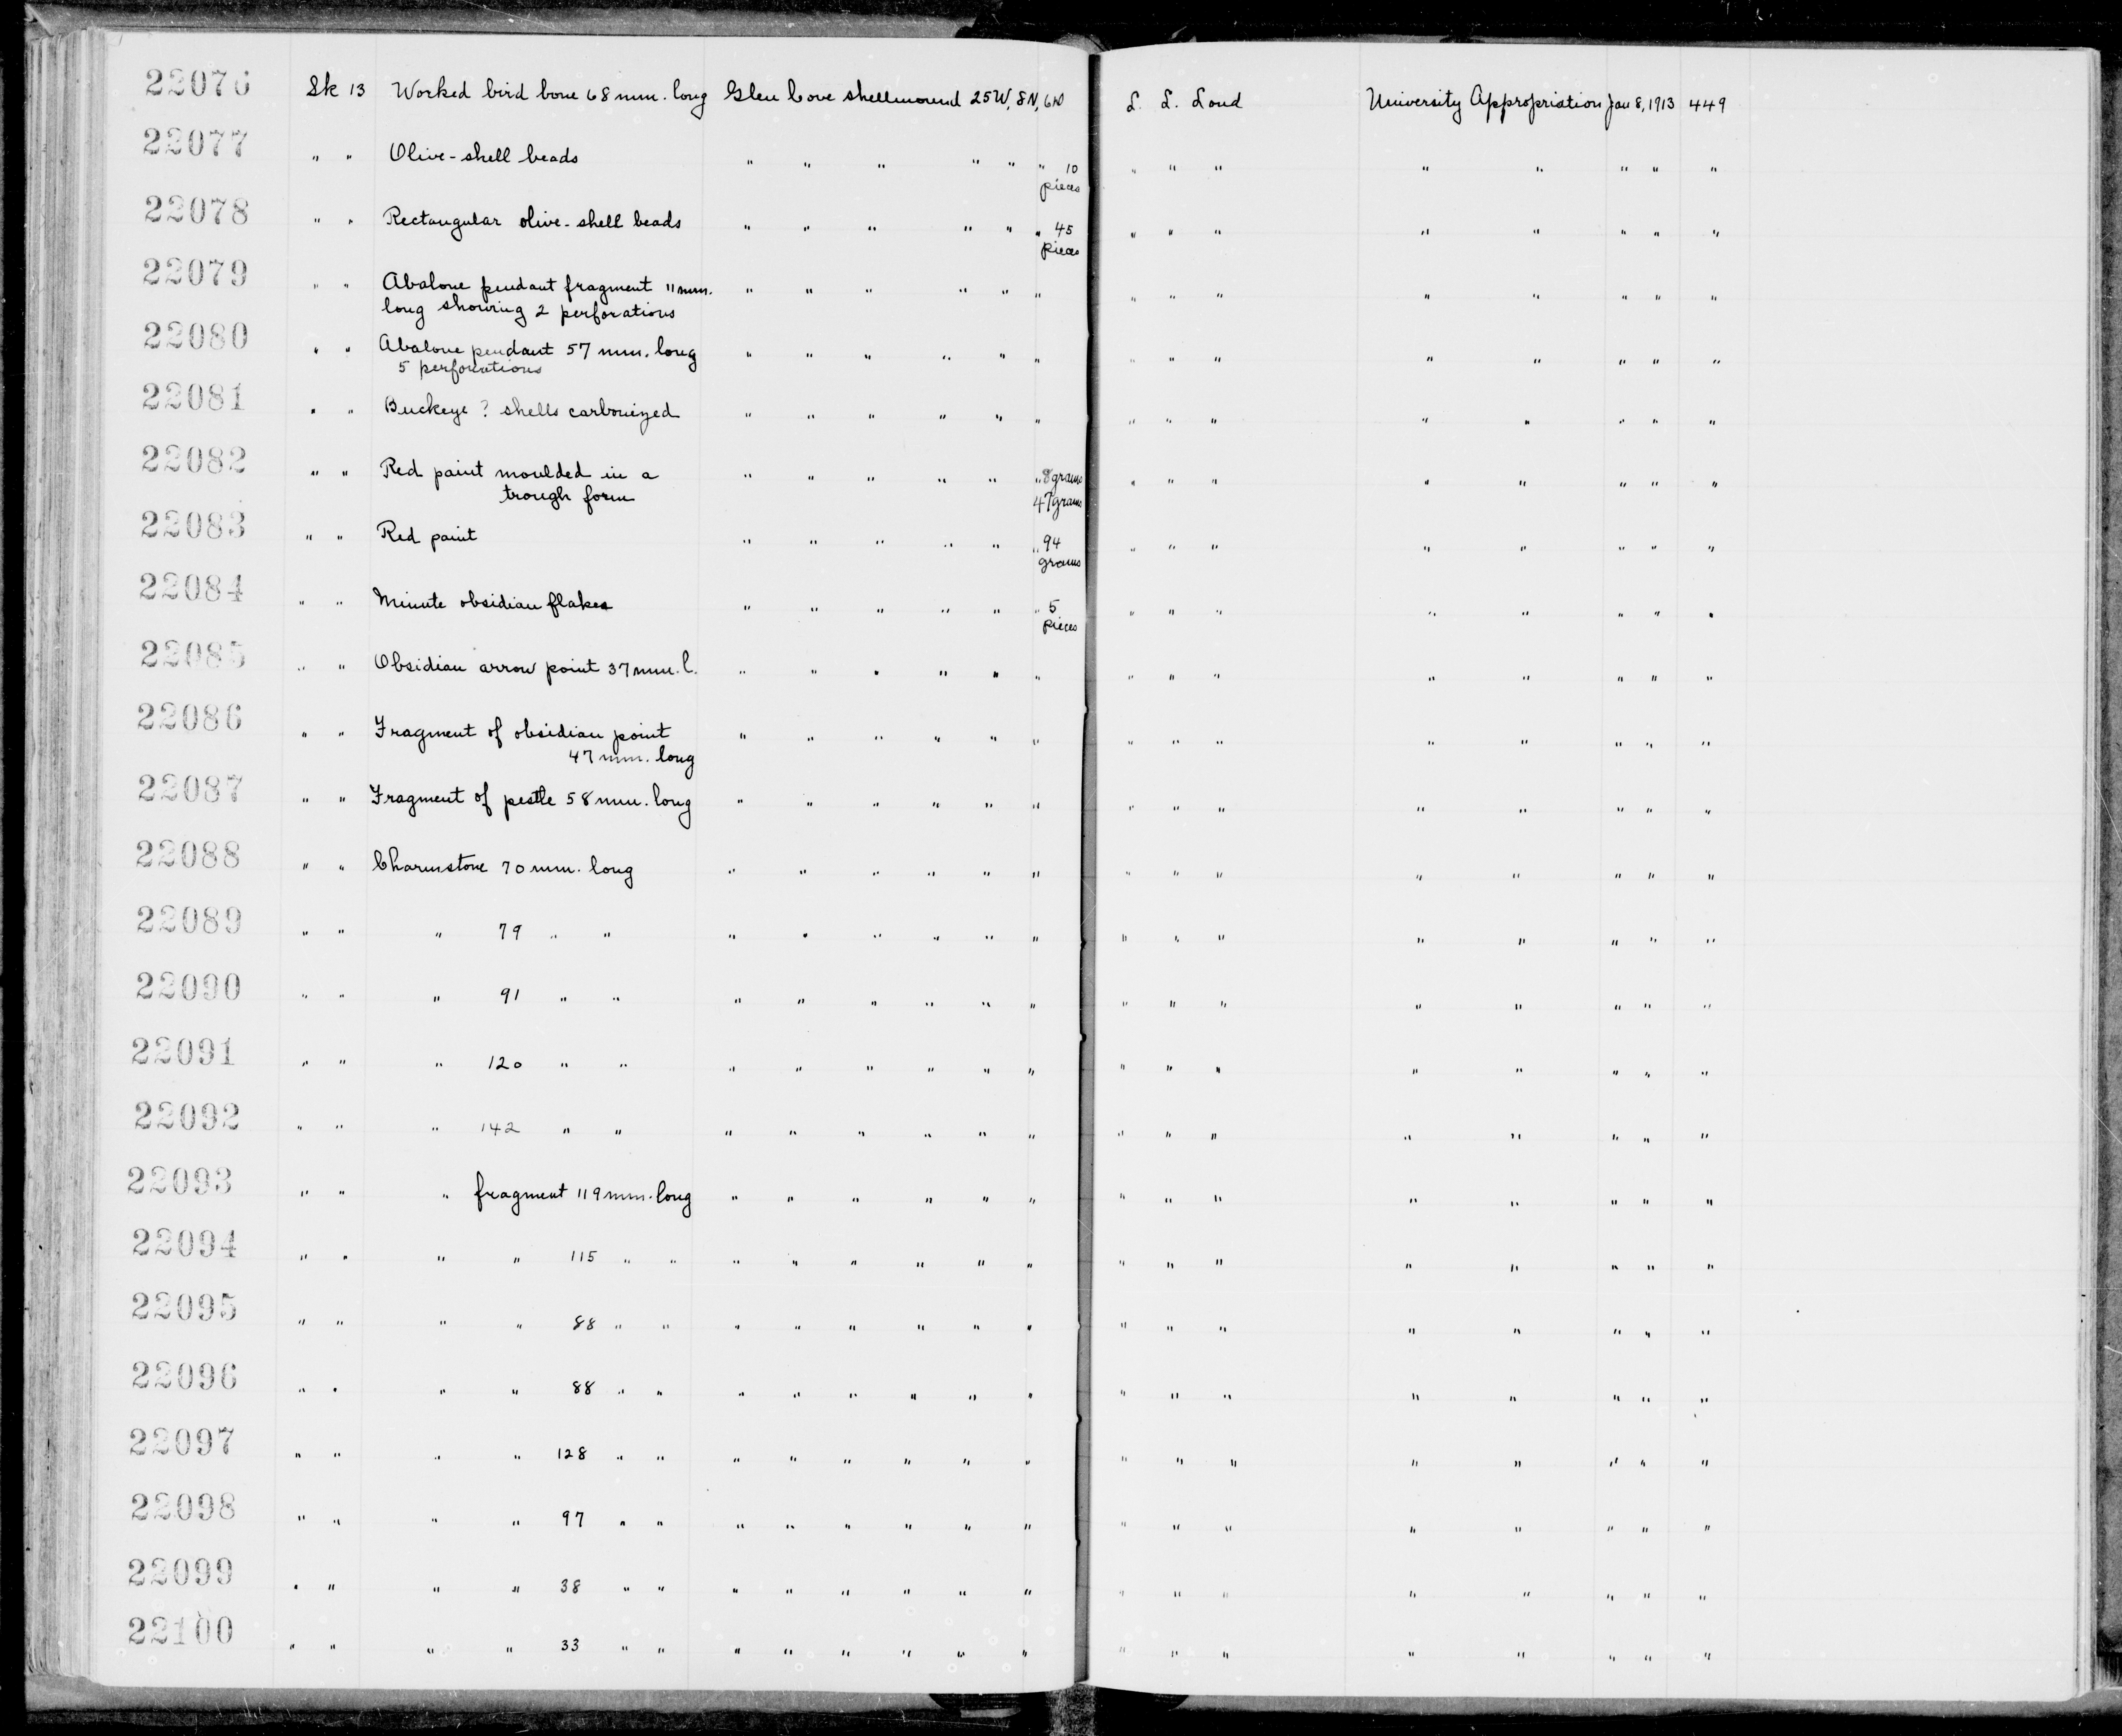 22076 Sk 13 Worked bird bone 68 mm. long Glen Cove shellmound 25W, 8N, L. L. Loud University Appropriation Jan 8, 1913 449
22077 " " Olive-shell beads " " " " " " 10 " " " " " " " "
pieces
22078 " " Rectangular olive-shell beads " " " " " " 45 " " " " " " " "
pieces
22079 " " Abalone pendant fragment 11 mm. " " " " " " " " " " " " " "
long showing 2 perforations
22080 " " Abalone pendant 57 mm. long " " " " " " " " " " " " " "
5 perforations
22081 " " Buckeye ? shells carbonized " " " " " " " " " " " " " "
22082 " " Red paint moulded in a " " " " " " 8 grams " " " " " " " "
trough form 47 grams
22083 " " Red paint " " " " " " 94 " " " " " " " "
grams
22084 " " Minute obsidian flakes " " " " " " 5 " " " " " " " "
pieces
22085 " " Obsidian arrow point 37 mm. l. " " " " " " " " " " " " " "
22086 " " Fragment of obsidian point " " " " " " " " " " " " " "
47 mm. long
22087 " " Fragment of pestle 58 mm. long " " " " " " " " " " " " " "
22088 " " Charmstone 70 mm. long " " " " " " " " " " " " " "
22089 " " " 79 " " " " " " " " " " " " " " " "
22090 " " " 91 " " " " " " " " " " " " " " " "
22091 " " " 120 " " " " " " " " " " " " " " " "
22092 " " " 142 " " " " " " " " " " " " " " " "
22093 " " " fragment 119 mm. long " " " " " " " " " " " " " "
22094 " " " " 115 " " " " " " " " " " " " " " " "
22095 " " " " 88 " " " " " " " " " " " " " " " "
22096 " " " " 88 " " " " " " " " " " " " " " " "
22097 " " " " 128 " " " " " " " " " " " " " " " "
22098 " " " " 97 " " " " " " " " " " " " " " " "
22099 " " " " 38 " " " " " " " " " " " " " " " "
22100 " " " " 33 " " " " " " " " " " " " " " " "